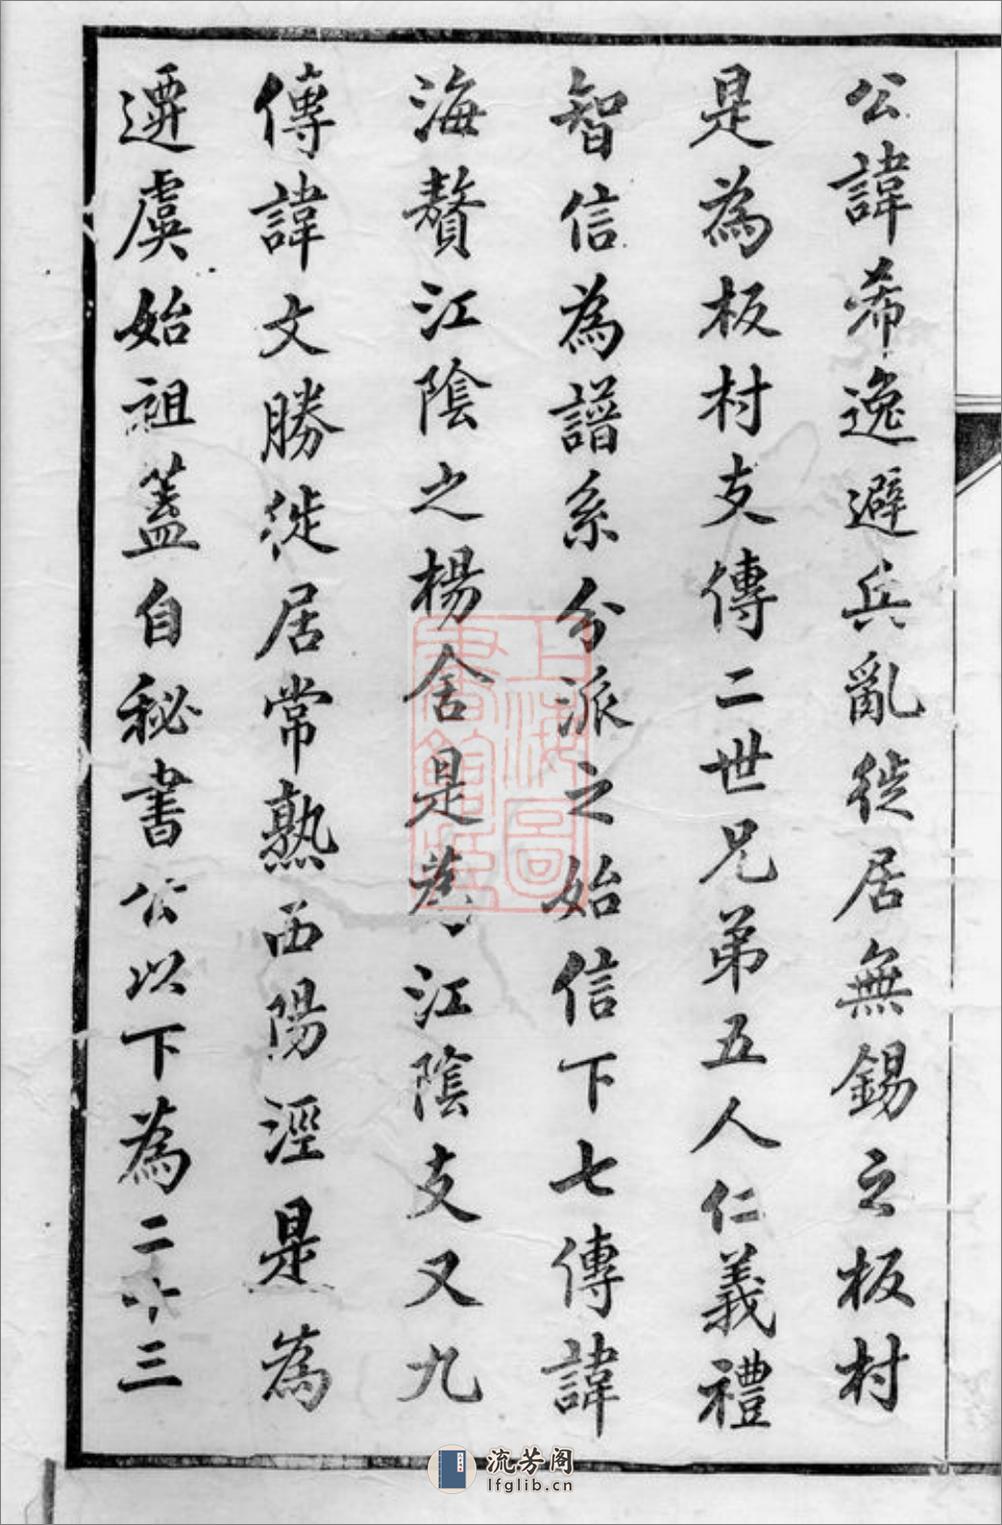 公諱希逸避兵亂徙居無錫之板村
是為板村支傳二世兄弟五人仁義禮
智信為譜系分派之始信下七傳諱
海贅江陰之楊舍是為江陰支又九
傳諱文勝徙居常熟西陽涇是為
遷虞始祖蓋自秘書公以下為二十三
上海圖書館藏
流芳阁
lfglib.cn